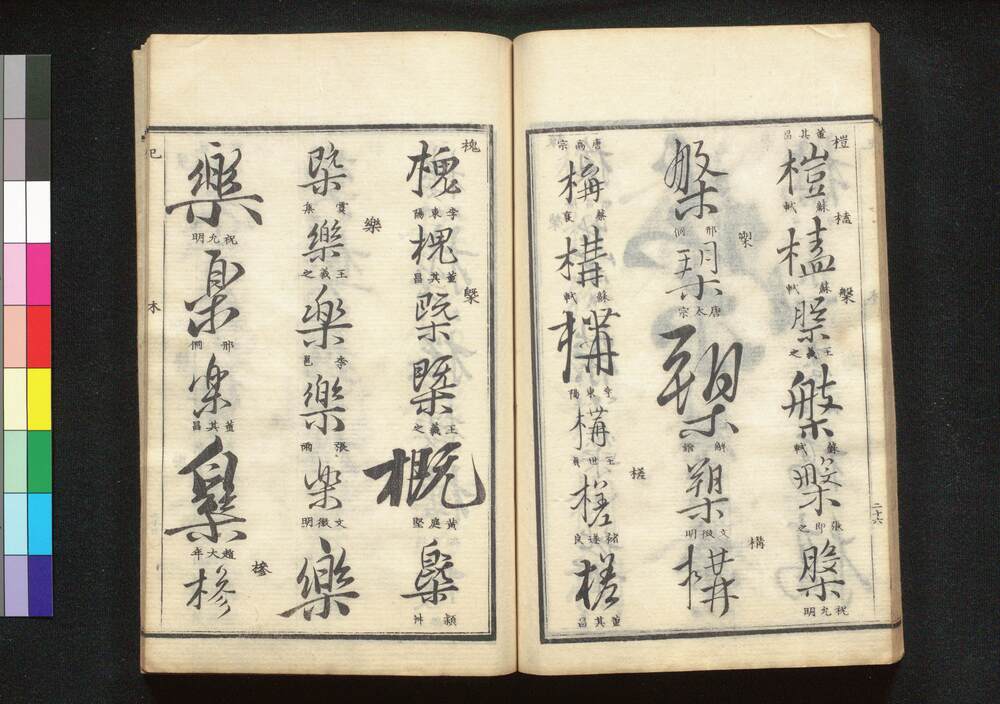 榿
董其昌
榿
蘇軾
榼
榼
蘇軾
槃
槃
王羲之
槃
蘇軾
槃
張即之
槃
祝允明
二十六
槊
邢侗
槊
唐太宗
槊
解縉
槊
文徵明
構
構
唐高宗
構
蔡襄
構
蘇軾
構
李東陽
構
王世貞
槎
槎
褚遂良
槎
董其昌
槐
槐
李東陽
槐
董其昌
槩
槩
槩
王羲之
概
黃庭堅
槩
穎井
槩
賞集
樂
樂
王羲之
樂
李邕
樂
張雨
樂
文徵明
樂
樂
祝允明
樂
邢侗
樂
董其昌
樂
趙大年
槮
槮
木